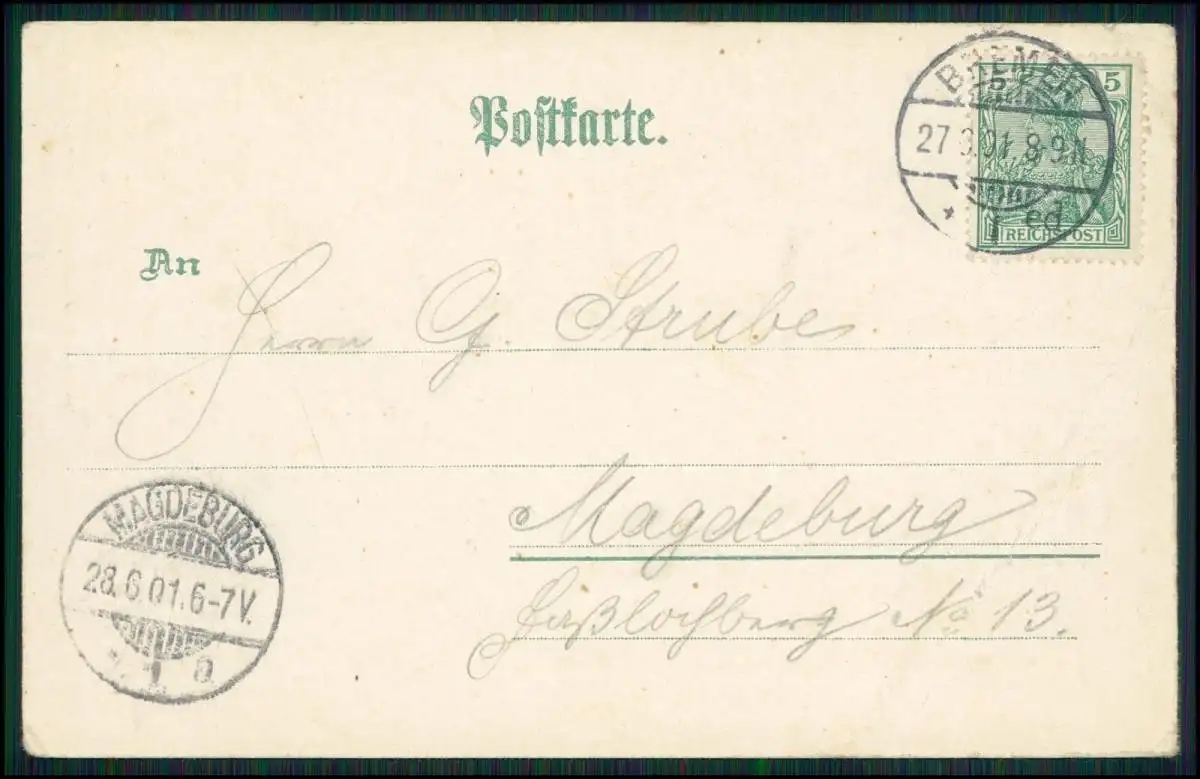 Postkarte.
BREMEN
5 5
27.6.01. 8-9N.
* 1 ed
REICHSPOST
An
Herrn G. Strube
Magdeburg
Faßlochberg No 13.
MAGDEBURG
28.6.01.6-7V.
* 1 a